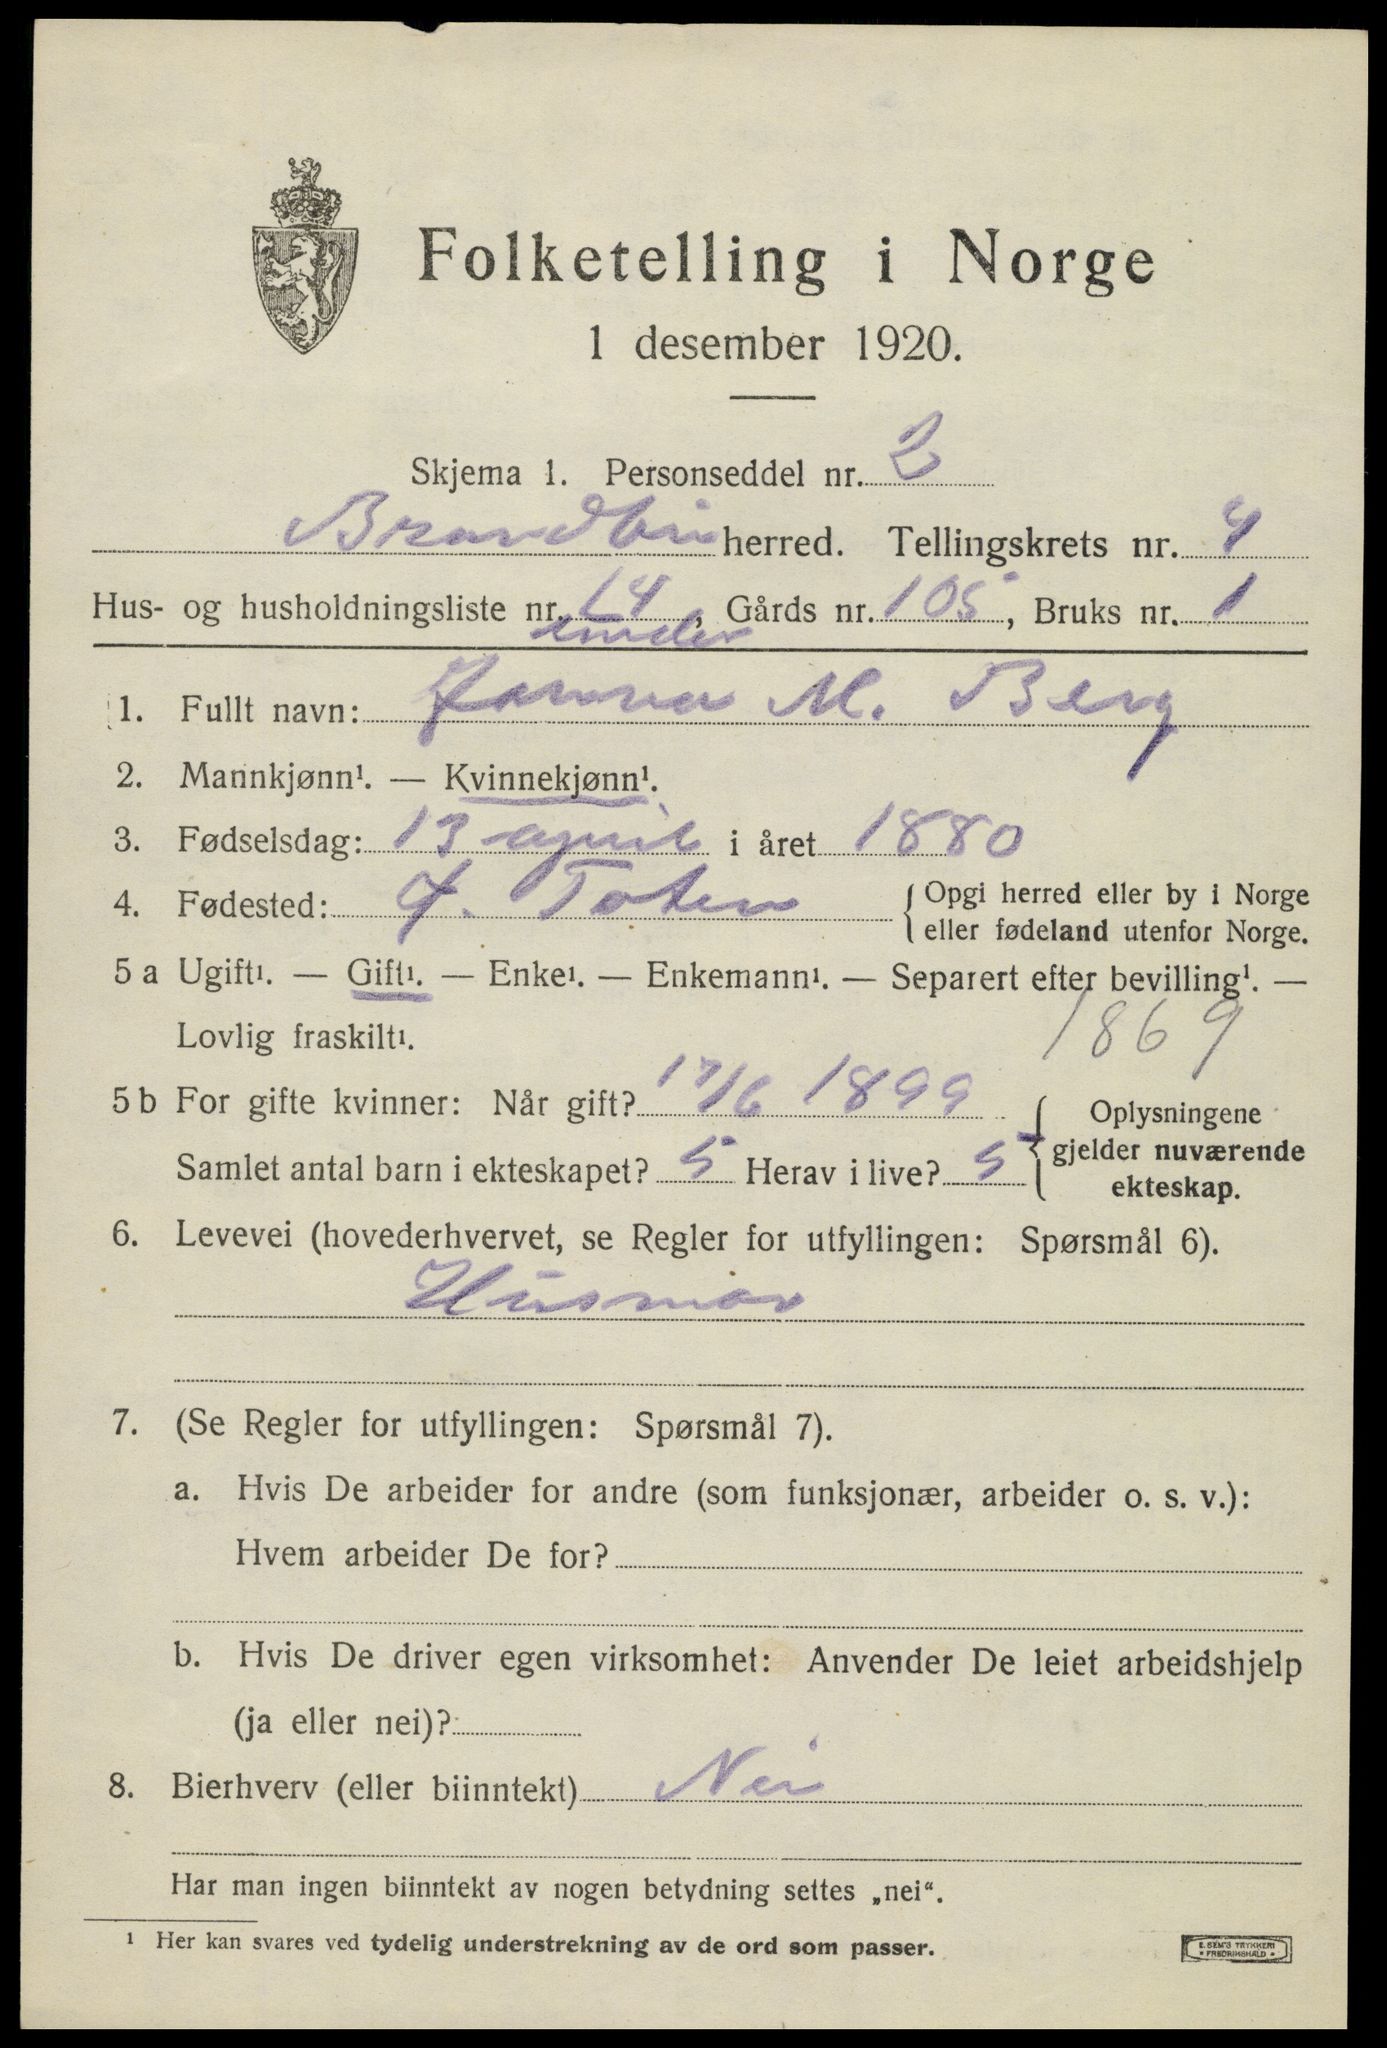 Folketelling i Norge
1 desember 1920.
Skjema 1. Personseddel nr. 2
Brandbu herred. Tellingskrets nr. 4
Hus- og husholdningsliste nr. 14, Gårds nr. 105, Bruks nr. 1
under
1. Fullt navn: M. Berg
2. Mannkjønn¹. — Kvinnekjønn¹.
3. Fødselsdag: 13 april i året 1880
4. Fødested: Toten
{ Opgi herred eller by i Norge
eller fødeland utenfor Norge.
5 a Ugift¹. — Gift¹. — Enke¹. — Enkemann¹. — Separert efter bevilling¹. —
Lovlig fraskilt¹.
1869
5 b For gifte kvinner: Når gift? 17/6 1899
Samlet antal barn i ekteskapet? 5 Herav i live? 5
{ Oplysningene
gjelder nuværende
ekteskap.
6. Levevei (hovederhvervet, se Regler for utfyllingen: Spørsmål 6).
Husmor
7. (Se Regler for utfyllingen: Spørsmål 7).
a. Hvis De arbeider for andre (som funksjonær, arbeider o. s. v.):
Hvem arbeider De for?
b. Hvis De driver egen virksomhet: Anvender De leiet arbeidshjelp
(ja eller nei)?
8. Bierhverv (eller biinntekt) Nei
Har man ingen biinntekt av nogen betydning settes „nei“.
¹ Her kan svares ved tydelig understrekning av de ord som passer.
E. SEM'S TRYKKERI
• FREDRIKSHALD •